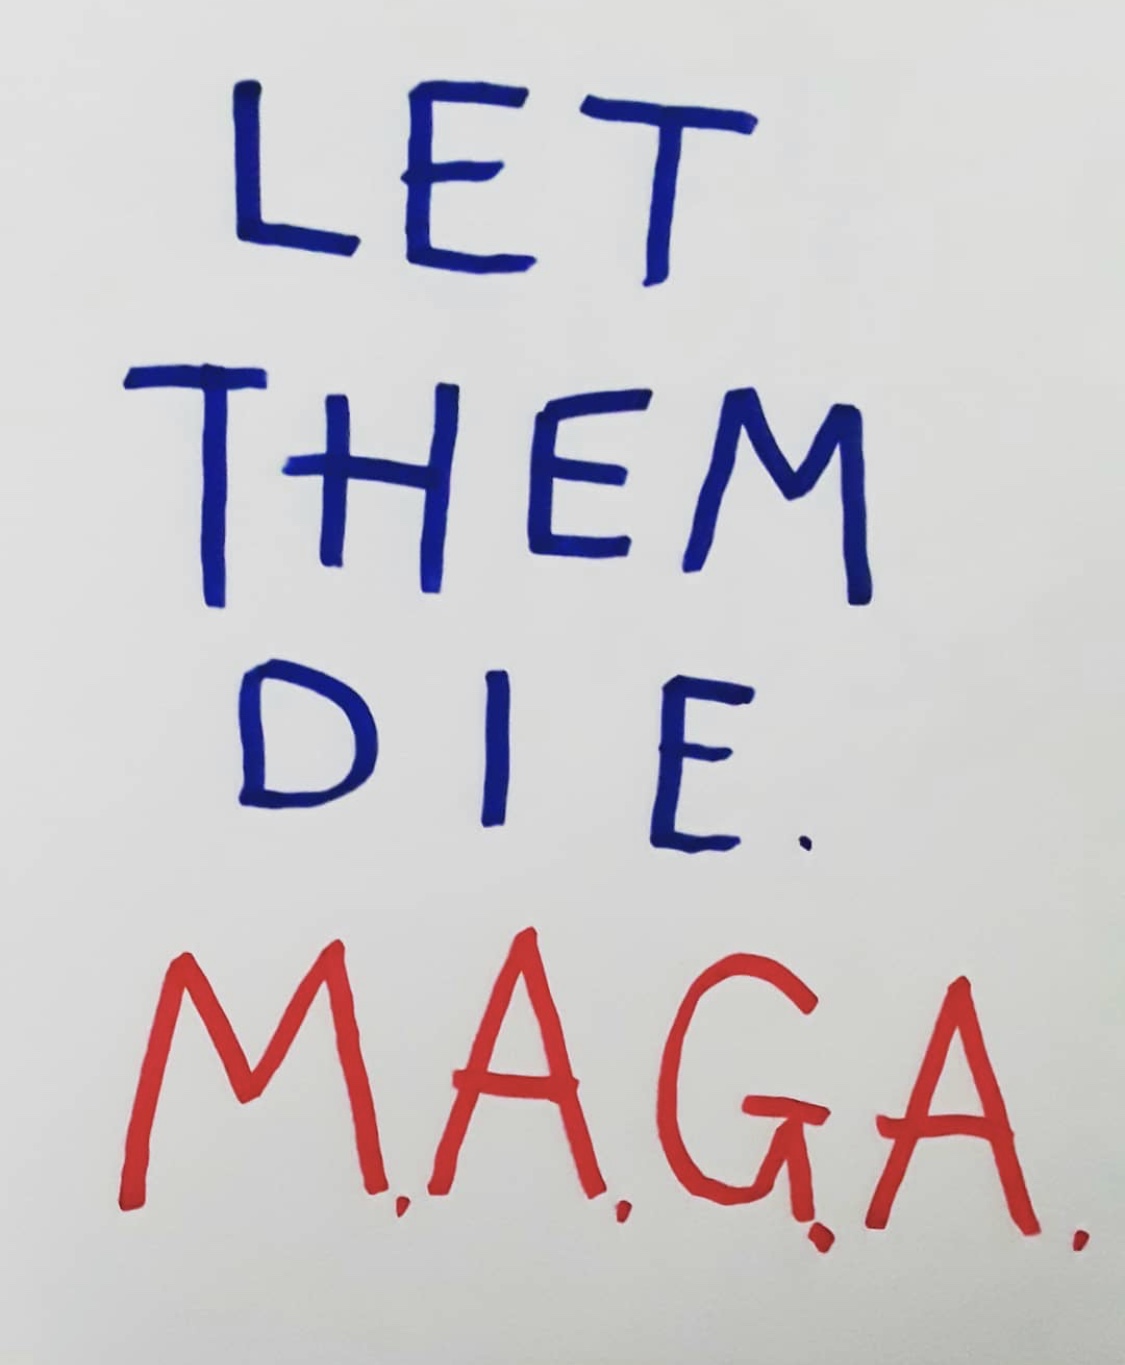 LET
THEM
DIE.
M.A.G.A.